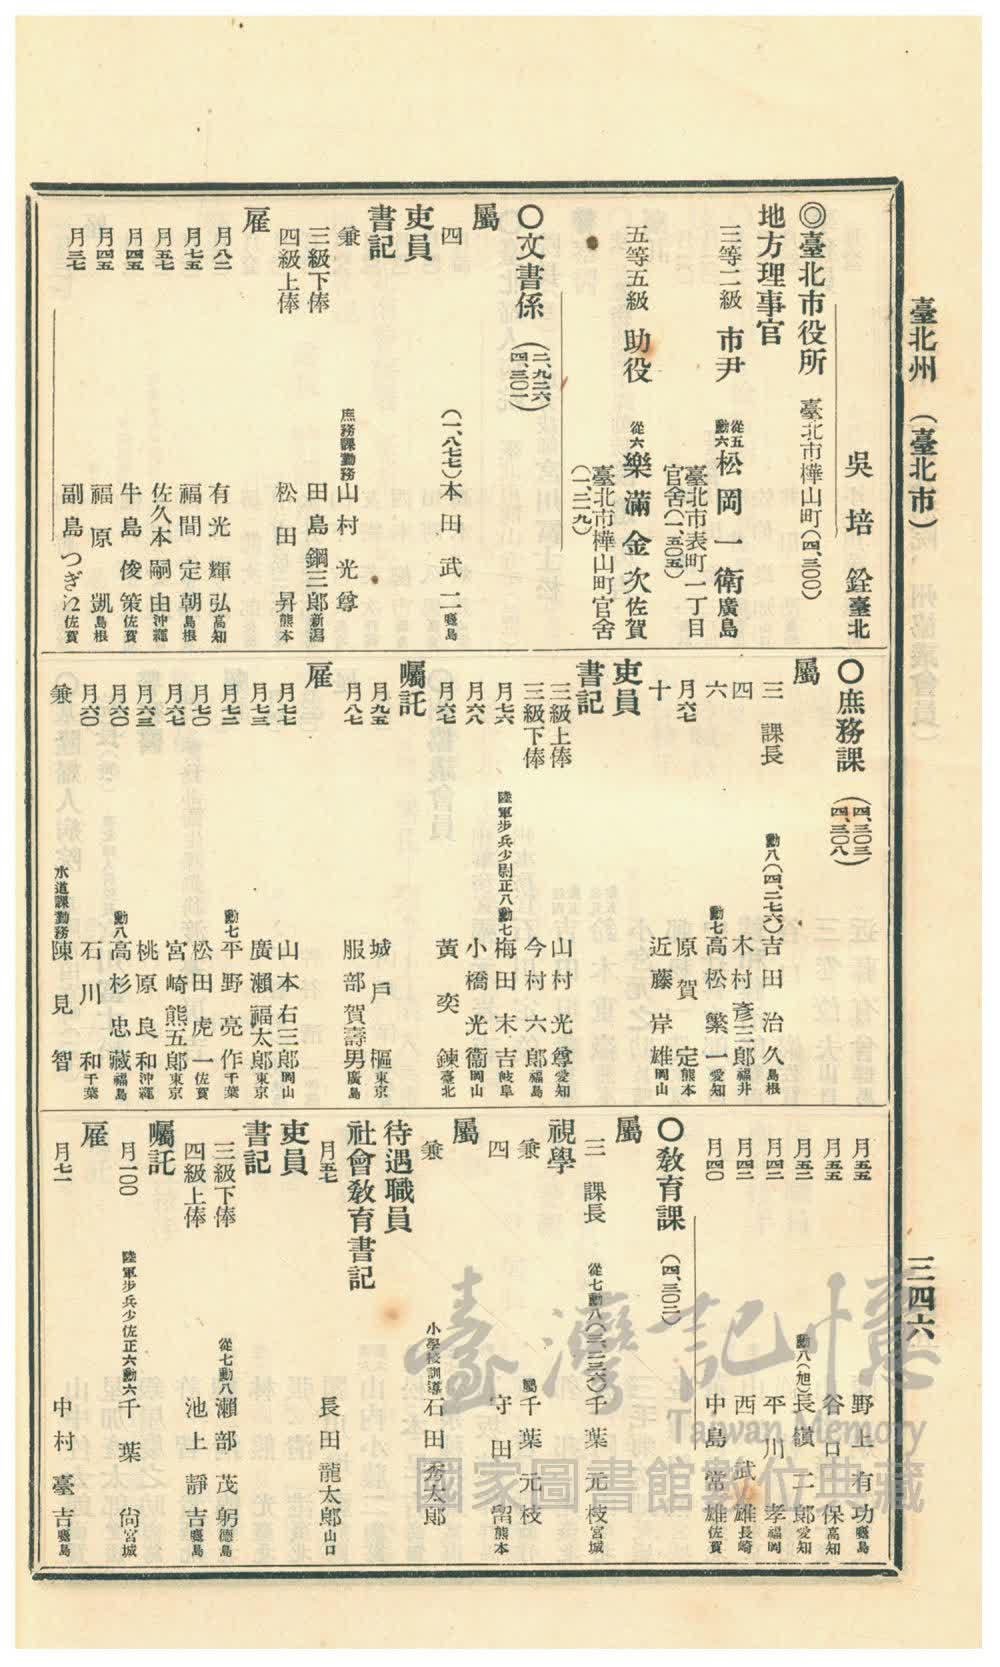 臺北州 (臺北市)
三四六
吳培銓 臺北
◎臺北市役所 臺北市樺山町(四、三〇〇)
地方理事官
三等二級 市尹 從五勳六 松岡一衛 廣島
臺北市表町一丁目
官舍(一、五〇五)
五等五級 助役 從六 樂滿金次 佐賀
臺北市樺山町官舍
(一、二二九)
〇文書係 (二、九二六 四、三〇一)
屬
四 (一、八七七)本田武二 鹿兒島
吏員
書記
兼 庶務課勤務 山村光尊
三級下俸 田島鋼三郎 新潟
四級上俸 松田昇 熊本
雇
月八二 有光輝弘 高知
月七五 福間定朝 島根
月五七 佐久本嗣由 沖繩
月四五 牛島俊策 佐賀
月四五 福原凱 島根
月三七 副島つぎ江 佐賀
〇庶務課 (四、三〇三 四、三〇八)
屬
三 課長 勳八(四、二七六)吉田治久 島根
四 木村彥三郎 福井
六 勳七 高松繁一 愛知
月六七 原賀定 熊本
十 近藤岸雄 岡山
吏員
書記
三級上俸 山村光尊 愛知
三級下俸 今村六郎 福島
月七六 陸軍步兵少尉正八勳七 梅田末吉 岐阜
月六八 小橋光衞 岡山
月六七 黃奕鍊 臺北
囑託
月九五 城戶樞 東京
月八七 服部賀壽男 廣島
雇
月七七 山本右三郎 岡山
月七三 廣瀨福太郎 東京
月七二 勳七 平野亮作 千葉
月七〇 松田虎一 佐賀
月六七 宮崎熊五郎 東京
月六三 桃原良和 沖繩
月六〇 勳八 高杉忠藏 福島
月六〇 石川和 千葉
兼 水道課勤務 陳見智
月五五 野上有功 鹿兒島
月五五 谷口保 高知
月五二 勳八(旭)長嶺二郎 愛知
月四二 平川孝 福岡
月四二 西武雄 長崎
月四〇 中島常雄 佐賀
〇敎育課 (四、三〇二)
屬
三 課長 從七勳八(三、二三六)千葉元枝 宮城
視學
兼 屬 千葉元枝
四 守田留 熊本
屬
兼 小學校訓導 石田秀太郎
待遇職員
社會敎育書記
月五七 長田龍太郎 山口
吏員
書記
三級下俸 從七勳八 瀨部茂躬 德島
四級上俸 池上靜吉 鹿兒島
囑託
月一〇〇 陸軍步兵少佐正六勳六 千葉尙 宮城
雇
月七一 中村臺吉 鹿兒島
臺灣記憶
Taiwan Memory
國家圖書館數位典藏